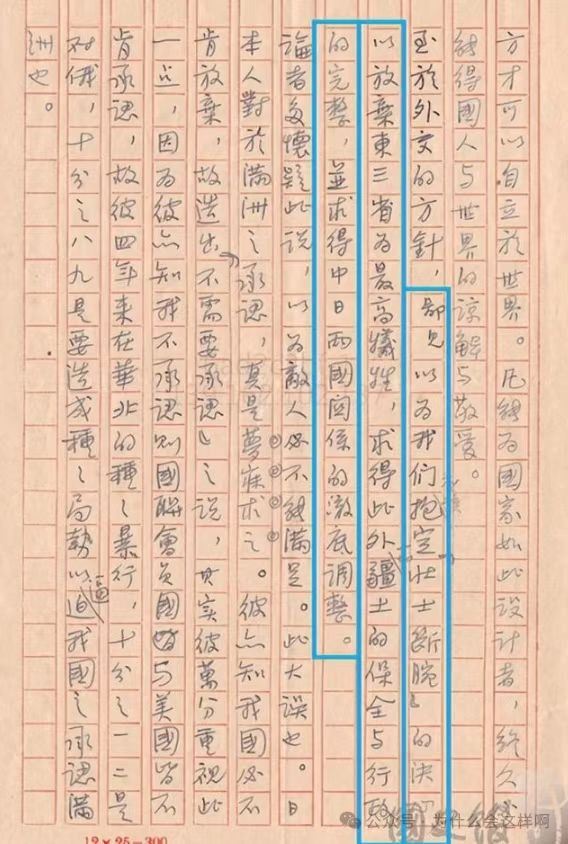 方才可以自立於世界。凡能為國家如此設計者，終久必
能得國人与世界的諒解与敬愛。
至於外交的方針，鄙見以為我們抱定「壯士斷腕」的決
以放棄東三省為最高犧牲，求得此外疆土的保全与行政
的完整，並求得中日兩國関係的澈底調整。
論者多懷疑此說，以為敵人必不能滿足。此大誤也。日
本人對於滿洲之承認，真是夢寐求之。彼亦知我國必不
肯放棄，故造出「不需要承認」之說，其實彼萬分重視此
一点，因為彼亦知我不承認則國聯會員國皆与美國皆不
肯承認，故彼四年來在華北的種々暴行，十分之一二是
对俄，十分之八九是要造成種々局勢以逼我國之承認滿
洲也。
12×25=300
公众号 · 为什么会这样啊